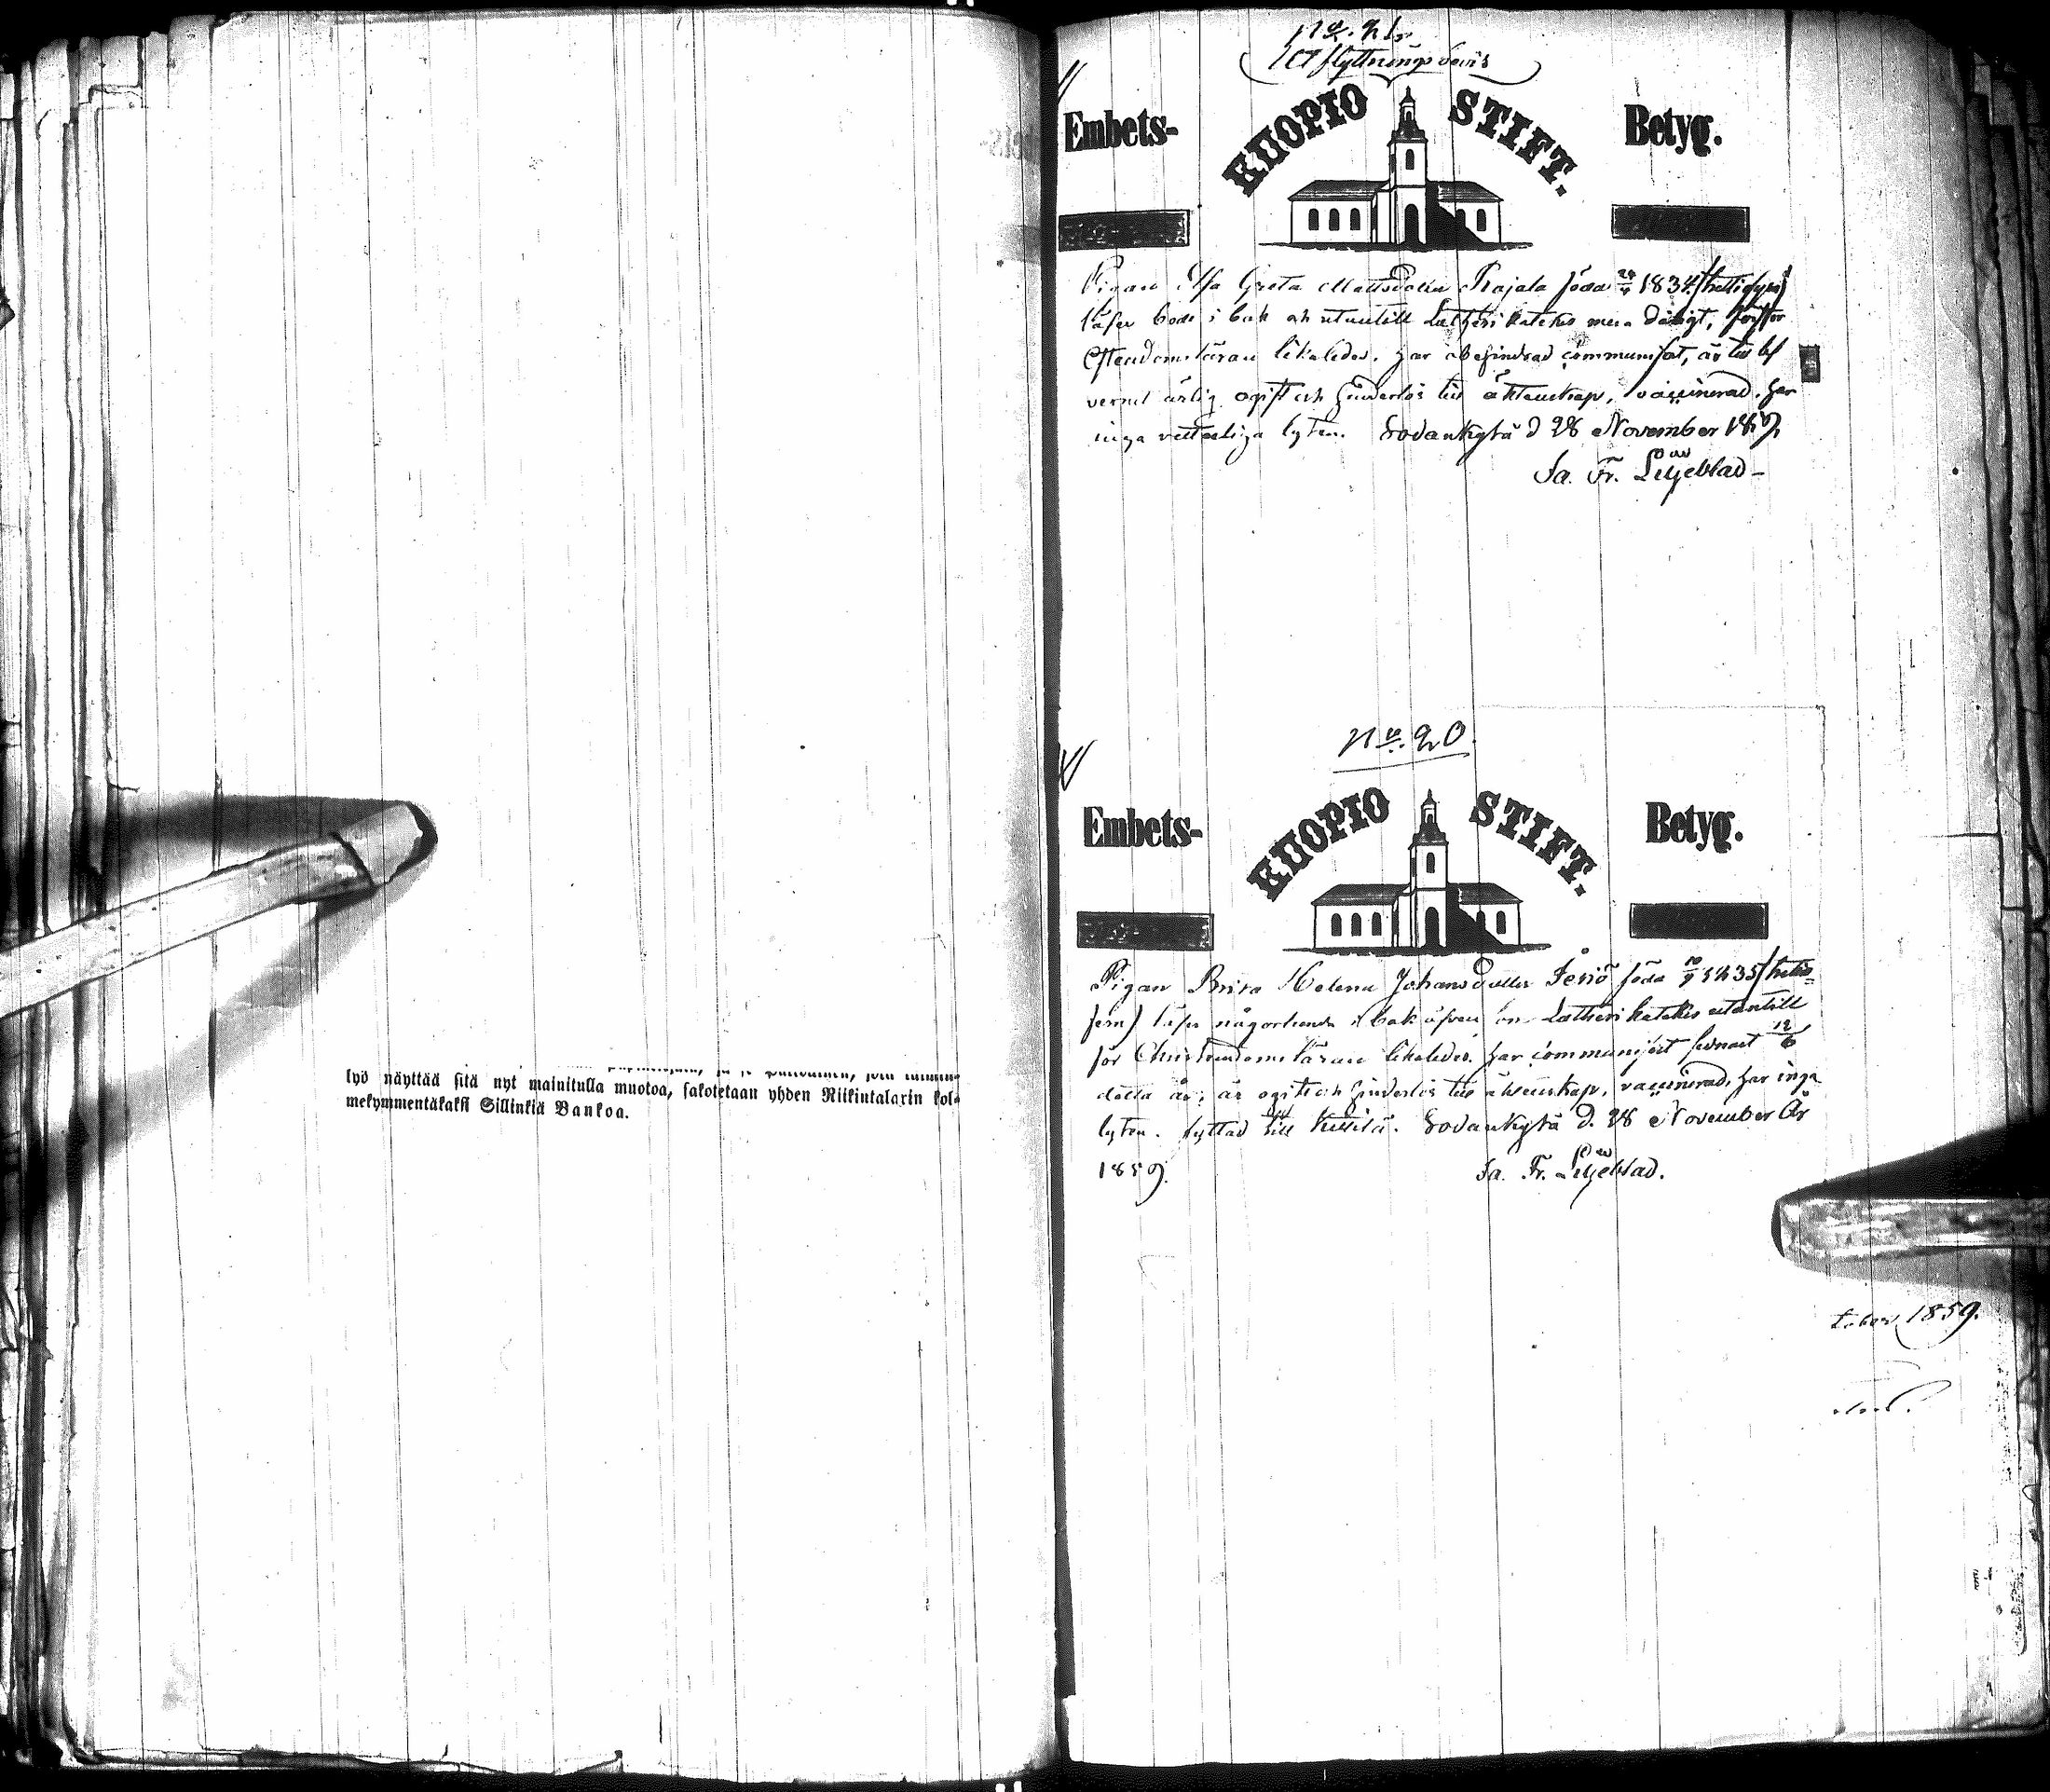 lyö näyttää sitä nyt mainitulla muotoa, sakotetaan yhden Riikintalarin kol-
mekymmentäkaksi Sillinkiä Bankoa.
flyttnings bevis
Embets- KUOPIO STIFT. Betyg.
Pigan Greta Mattsdotter Rajala föda 1834
läser både i bok och utantill Lutheri kateches mera dåligt, förstår
Christendomsläran likaledes. har obehindrad communicat, är till
vernet ärlig ogift och hinderlös till äktenskap, vaccinerad, har
inga lyten. Sodankylä d 28 November 1859,
Ja. Fr. Liljeblad
N:o 20
Embets- KUOPIO STIFT. Betyg.
Pigan Brita Helena Johansdotter Jesiö föda 10/9 1835
fem) läser någorlunda i bok äfven Lutheri kateches utantill
för Christendomsläran likaledes. har communicerat senast 12/6
detta år, är ogift och hinderlös till äktenskap, vaccinerad, har inga
lyten. flyttad till Kittilä. Sodankylä d. 28 November År
1859. Ja. Fr. Liljeblad.
1859.